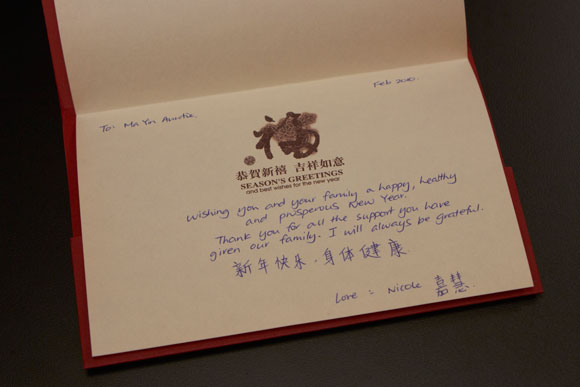 Feb 2010.
To: Ma Yin Auntie,
福
恭賀新禧 吉祥如意
SEASON'S GREETINGS
and best wishes for the new year
Wishing you and your family a happy, healthy
and prosperous New Year.
Thank you for all the support you have
given our family. I will always be grateful.
新年快乐、身体健康
Love: Nicole 嘉慧